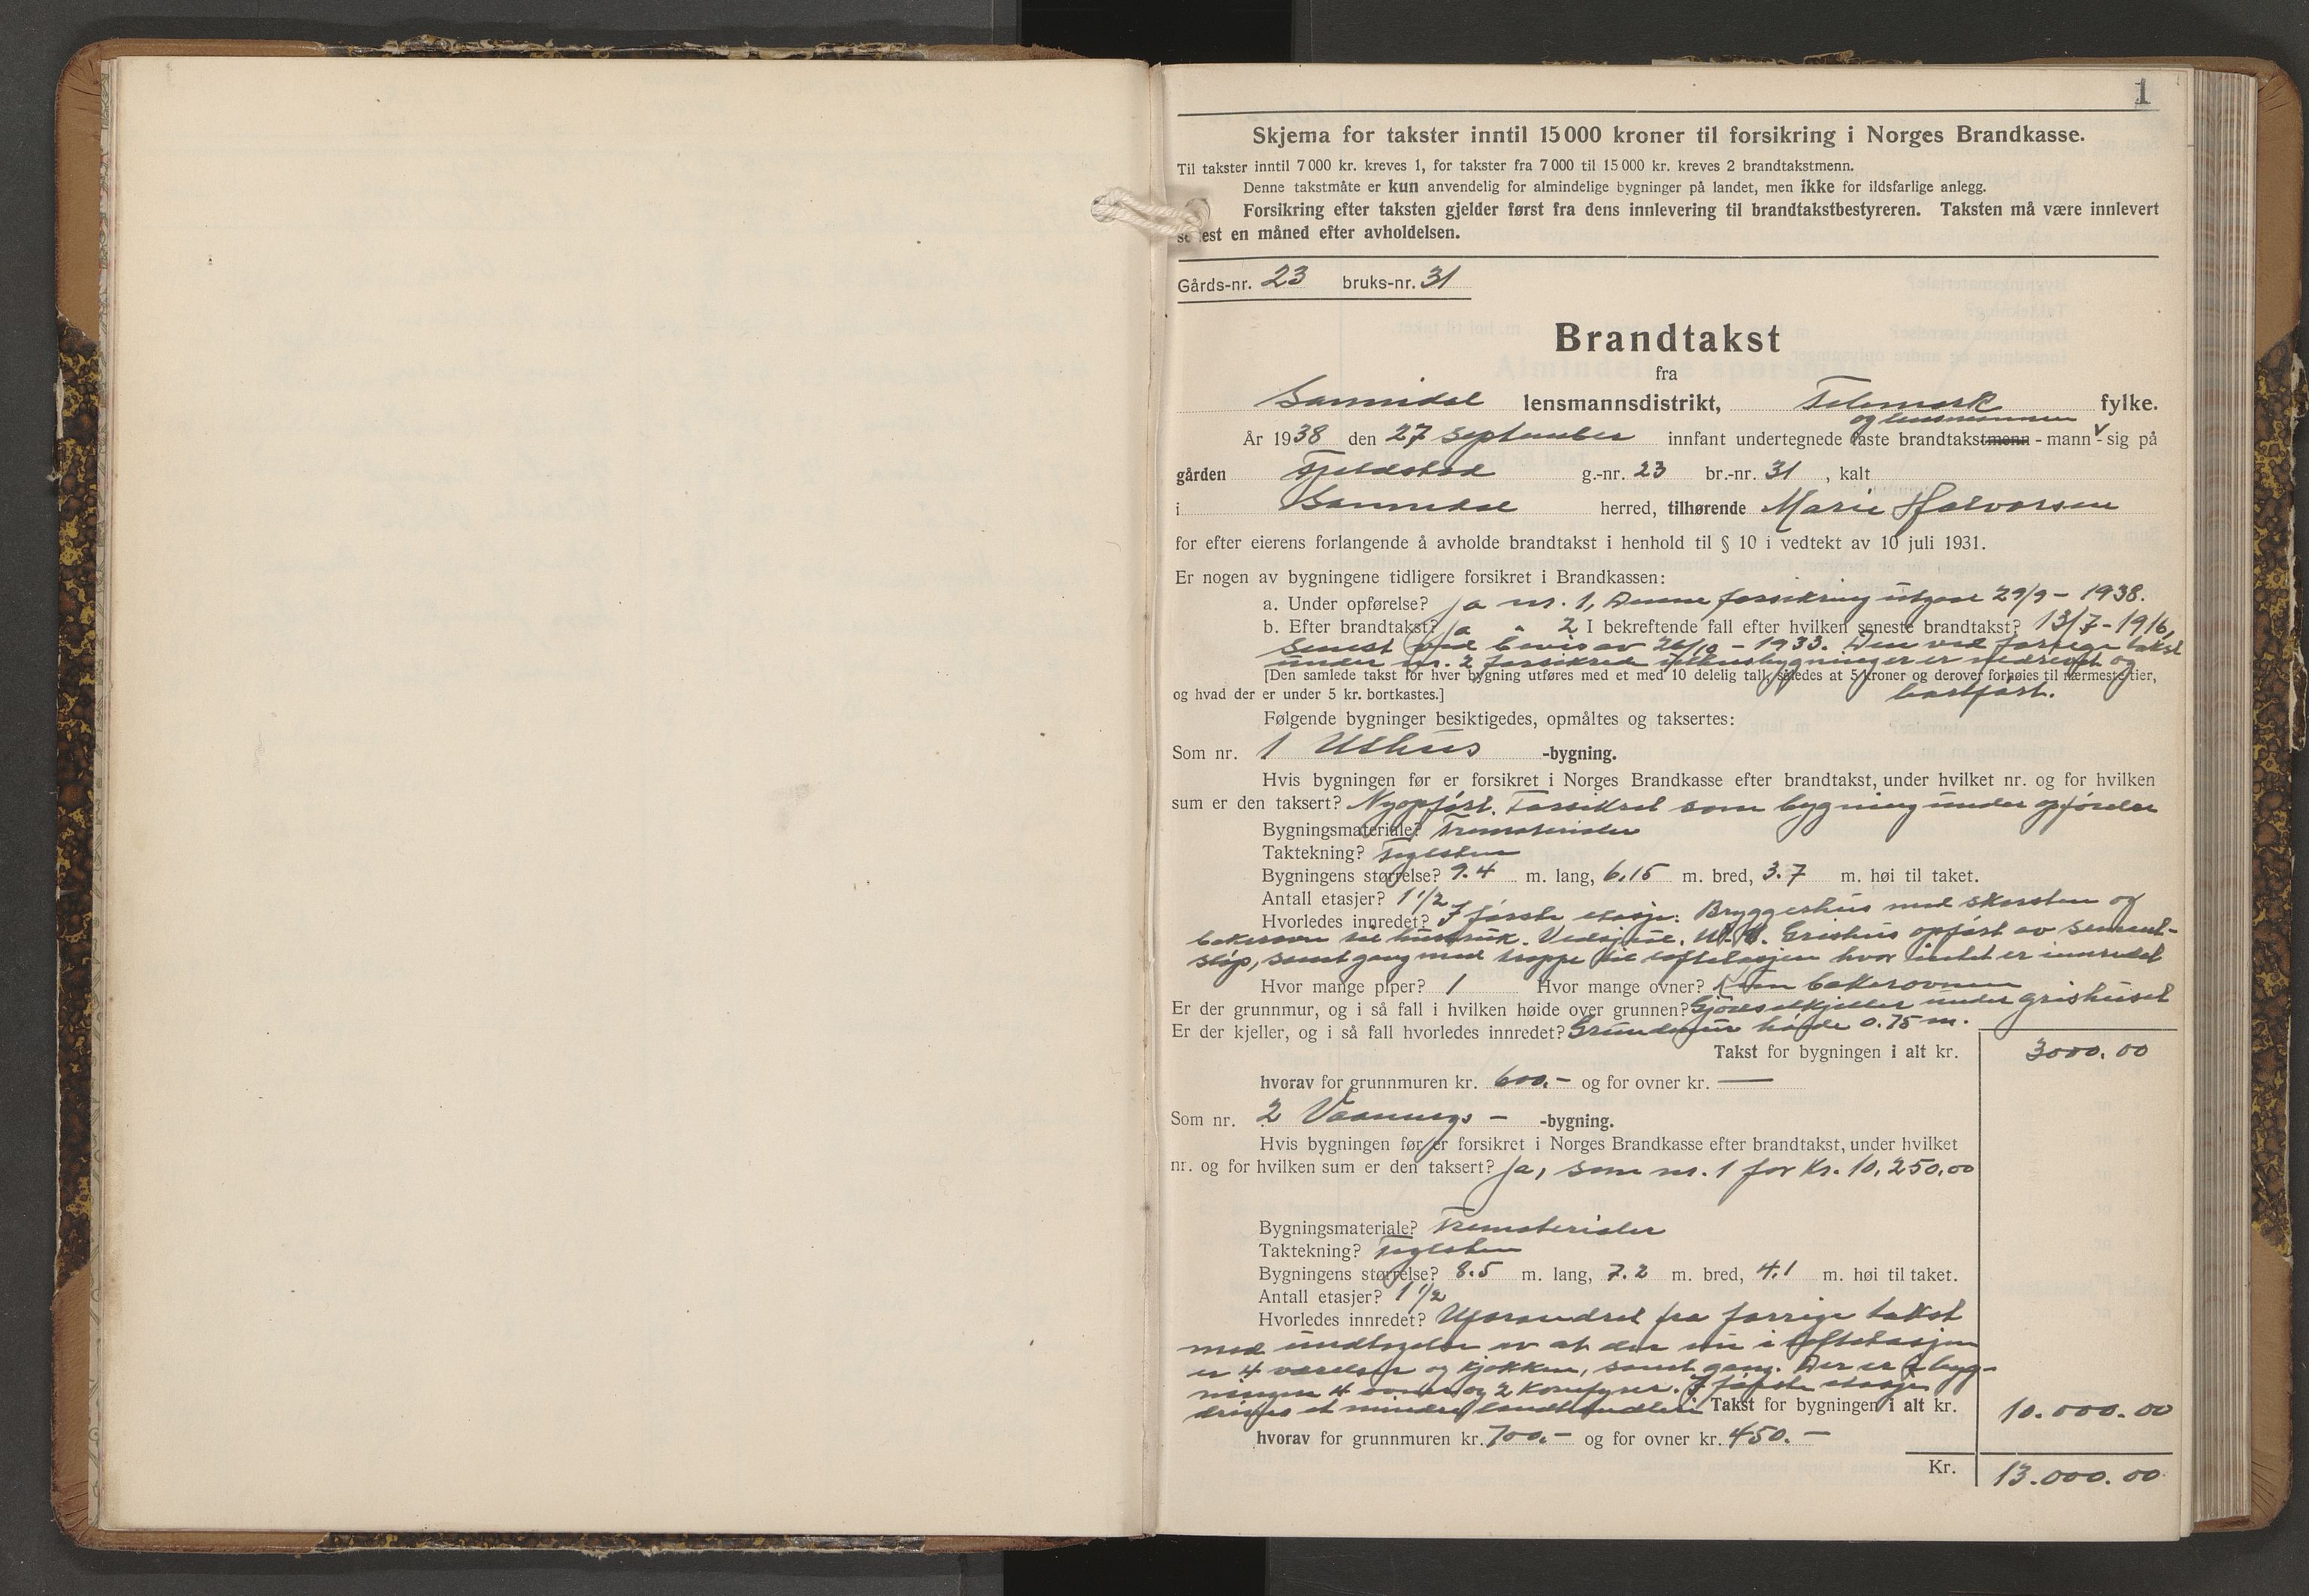 1
Skjema for takster inntil 15 000 kroner til forsikring i Norges Brandkasse.
Til takster inntil 7 000 kr. kreves 1, for takster fra 7 000 til 15 000 kr. kreves 2 brandtakstmenn.
Denne takstmåte er kun anvendelig for almindelige bygninger på landet, men ikke for ildsfarlige anlegg.
Forsikring efter taksten gjelder først fra dens innlevering til brandtakstbestyreren. Taksten må være innlevert
senest en måned efter avholdelsen.
Gårds-nr. 23 bruks-nr. 31
Brandtakst
fra
Sannidal lensmannsdistrikt, Telemark fylke.
og lensmannen
År 1938 den 27 september innfant undertegnede faste brandtakstmenn - mann - sig på
gården Fjeldstad g.-nr. 23 br.-nr. 31 , kalt
i Sannidal herred, tilhørende Marie Halvorsen
for efter eierens forlangende å avholde brandtakst i henhold til § 10 i vedtekt av 10 juli 1931.
Er nogen av bygningene tidligere forsikret i Brandkassen:
a. Under opførelse? ja nr. 1, Denne forsikring utgaar 29/9 - 1938.
b. Efter brandtakst? ja " 2 I bekreftende fall efter hvilken seneste brandtakst? 13/7 - 1916,
senest ved bevis av 26/10 - 1933. Den ved forrige takst
under nr. 2 forsikred uthusbygninger er nedrevet og
[Den samlede takst for hver bygning utføres med et med 10 delelig tall, således at 5 kroner og derover forhøies til nærmeste tier,
og hvad der er under 5 kr. bortkastes.] bortført.
Følgende bygninger besiktigedes, opmåltes og taksertes:
Som nr. 1 Uthus -bygning.
Hvis bygningen før er forsikret i Norges Brandkasse efter brandtakst, under hvilket nr. og for hvilken
sum er den taksert? Nyopført. Forsikret som bygning under opførelse
Bygningsmateriale? Trematerialer
Taktekning? Taglsten
Bygningens størrelse? 9.4 m. lang, 6,15 m. bred, 3.7 m. høi til taket.
Antall etasjer? 1 1/2
Hvorledes innredet? I første etasje: Bryggerhus med skorsten og
bakerovn til husbruk. Vedskjul, W.C. Grishus opført av sement-
støp, samt gang med trappe til loftetasjen hvor intet er innredet
Hvor mange piper? 1 Hvor mange ovner? Kun bakerovnen
Er der grunnmur, og i så fall i hvilken høide over grunnen? Gjødselkjeller under grishuset
Er der kjeller, og i så fall hvorledes innredet? Grundmur høide 0.75 m.
Takst for bygningen i alt kr. 3000.00
hvorav for grunnmuren kr. 600.- og for ovner kr. —
Som nr. 2 Vaanings- -bygning.
Hvis bygningen før er forsikret i Norges Brandkasse efter brandtakst, under hvilket
nr. og for hvilken sum er den taksert? Ja, som nr. 1 for kr. 10,250,00
Bygningsmateriale? Trematerialer
Taktekning? Taglsten
Bygningens størrelse? 8.5 m. lang, 7.2 m. bred, 4.1 m. høi til taket.
Antall etasjer? 1 1/2
Hvorledes innredet? Uforandret fra forrige takst
med undtagelse av at der nu i loftetasjen
er 4 værelser og kjøkken, samt gang. Der er i byg-
ningen 4 ovner og 2 komfyrer. I første etasje
drives et mindre landhandleri Takst for bygningen i alt kr. 10.000.00
hvorav for grunnmuren kr. 700.- og for ovner kr. 450.-
Kr. 13.000.00